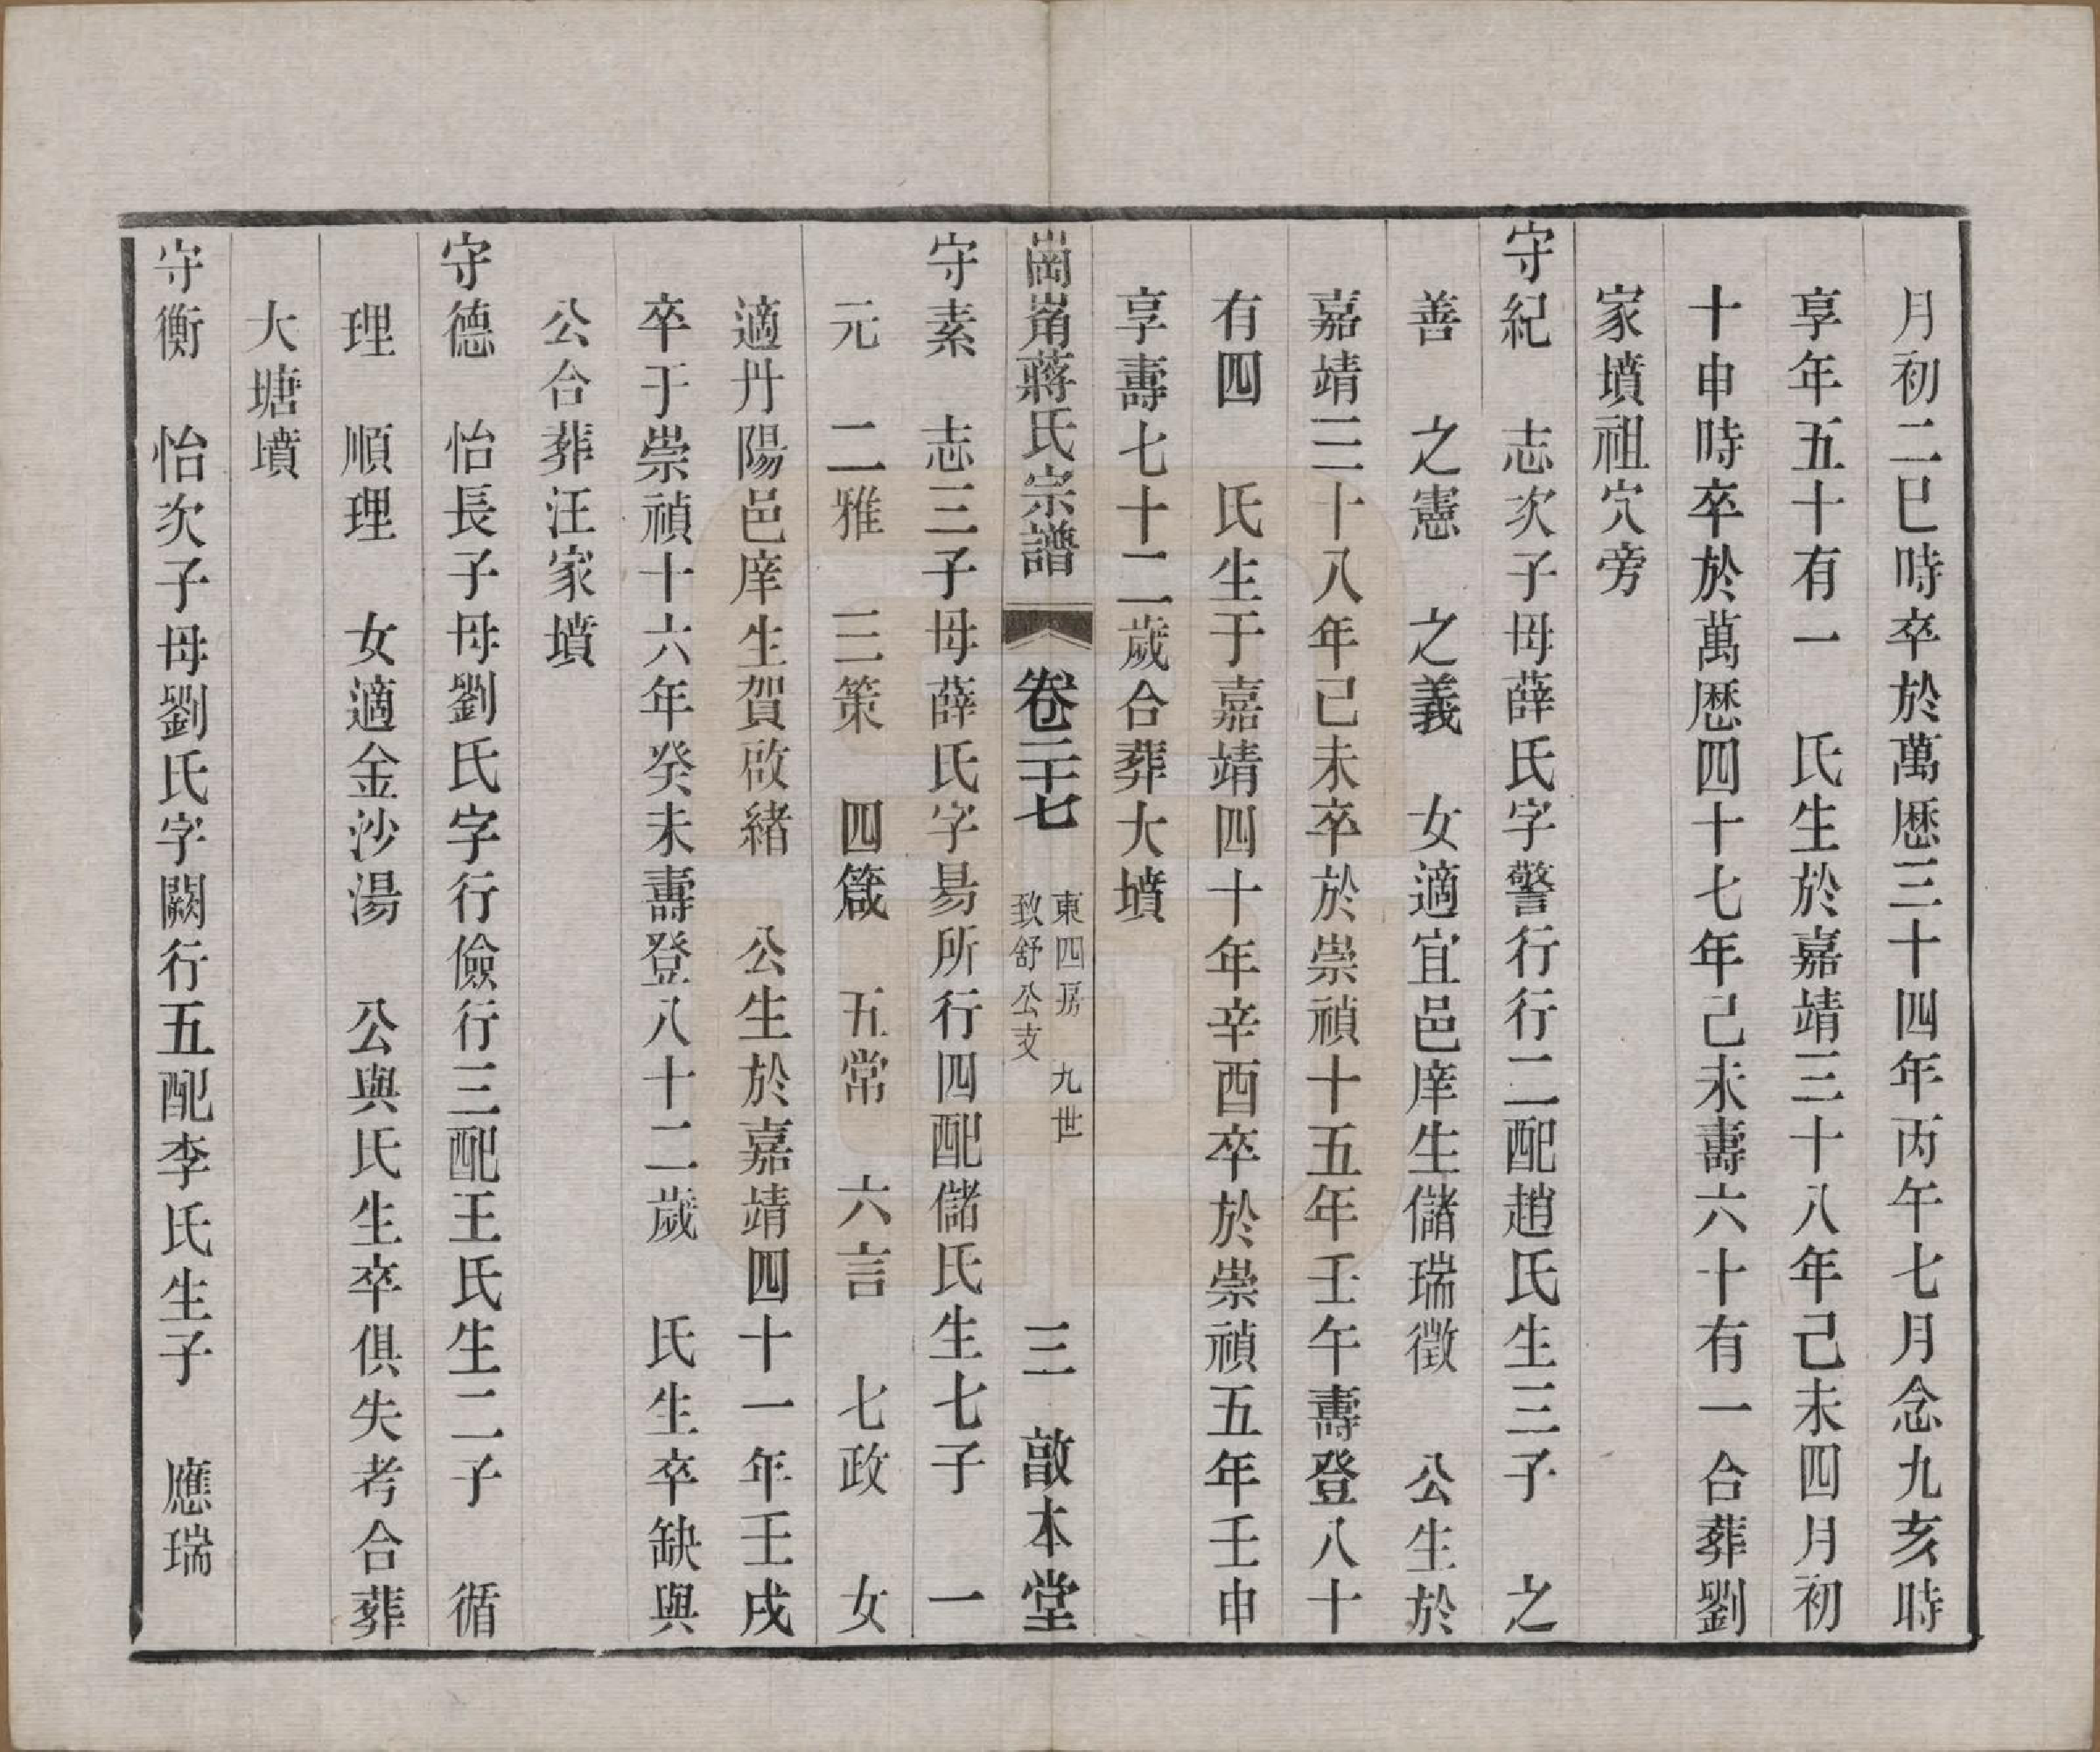 月初二巳時卒於萬厯三十四年丙午七月念九亥時
享年五十有一　氏生於嘉靖三十八年己未四月初
十申時卒於萬厯四十七年己未壽六十有一合葬劉
家墳祖穴旁
守紀　志次子母薛氏字警行行二配趙氏生三子　之
善　之憲　之義　女適宜邑庠生儲瑞徵　公生於
嘉靖三十八年己未卒於崇禎十五年壬午壽登八十
有四　氏生于嘉靖四十年辛酉卒於崇禎五年壬申
享壽七十二歲合葬大墳
崗㟁蔣氏宗譜　卷二十七　東四房　九世　致舒公支　三　敬本堂
守素　志三子母薛氏字昜所行四配儲氏生七子　一
元　二雅　三策　四箴　五常　六言　七政　女
適丹陽邑庠生賀啟緒　公生於嘉靖四十一年壬戌
卒于崇禎十六年癸未壽登八十二歲　氏生卒缺與
公合葬汪家墳
守德　怡長子母劉氏字行儉行三配王氏生二子　循
理　順理　女適金沙湯　公與氏生卒俱失考合葬
大塘墳
守衡　怡次子母劉氏字闕行五配李氏生子　應瑞